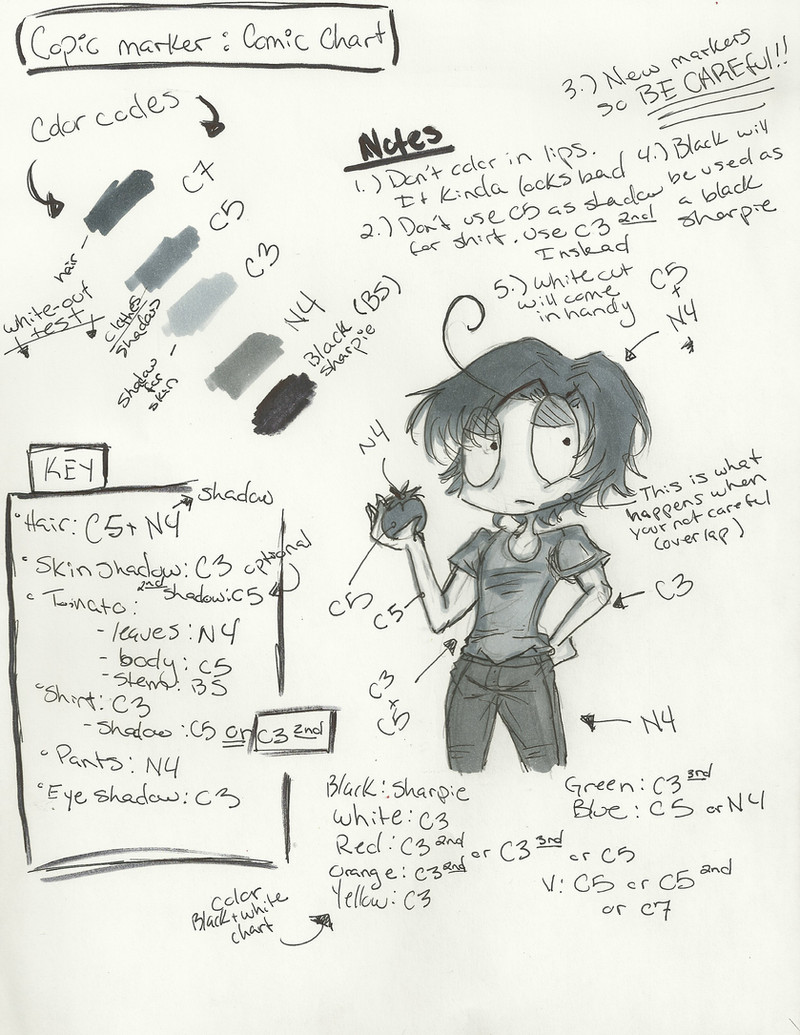 Copic marker: Comic Chart
Color codes
C7
C5
C3
N4
Black (BS)
sharpie
hair
clothes
shadows
shadow
for
skin
white-out
test
Notes
1.) Don't color in lips.
It kinda looks bad
2.) Don't use C5 as shadow
for shirt. Use C3 2nd
Instead
3.) New markers
so BE CAREFUL!!
4.) Black will
be used as
a black
sharpie
5.) White out
will come
in handy
C5
+
N4
N4
C5
C5
C3
+
C5
This is what
happens when
your not careful
(overlap)
C3
N4
KEY
Hair: C5 + N4
shadow
Skin shadow: C3
optional
2nd shadow: C5
Tomato:
- leaves: N4
- body: C5
- stem: BS
Shirt: C3
- shadow: C5 or C3 2nd
Pants: N4
Eye shadow: C3
Black: Sharpie
White: C3
Red: C3 2nd or C3 3rd or C5
Orange: C3 2nd
Yellow: C3
Green: C3 3rd
Blue: C5 or N4
V: C5 or C5 2nd
or C7
color
Black + white
chart